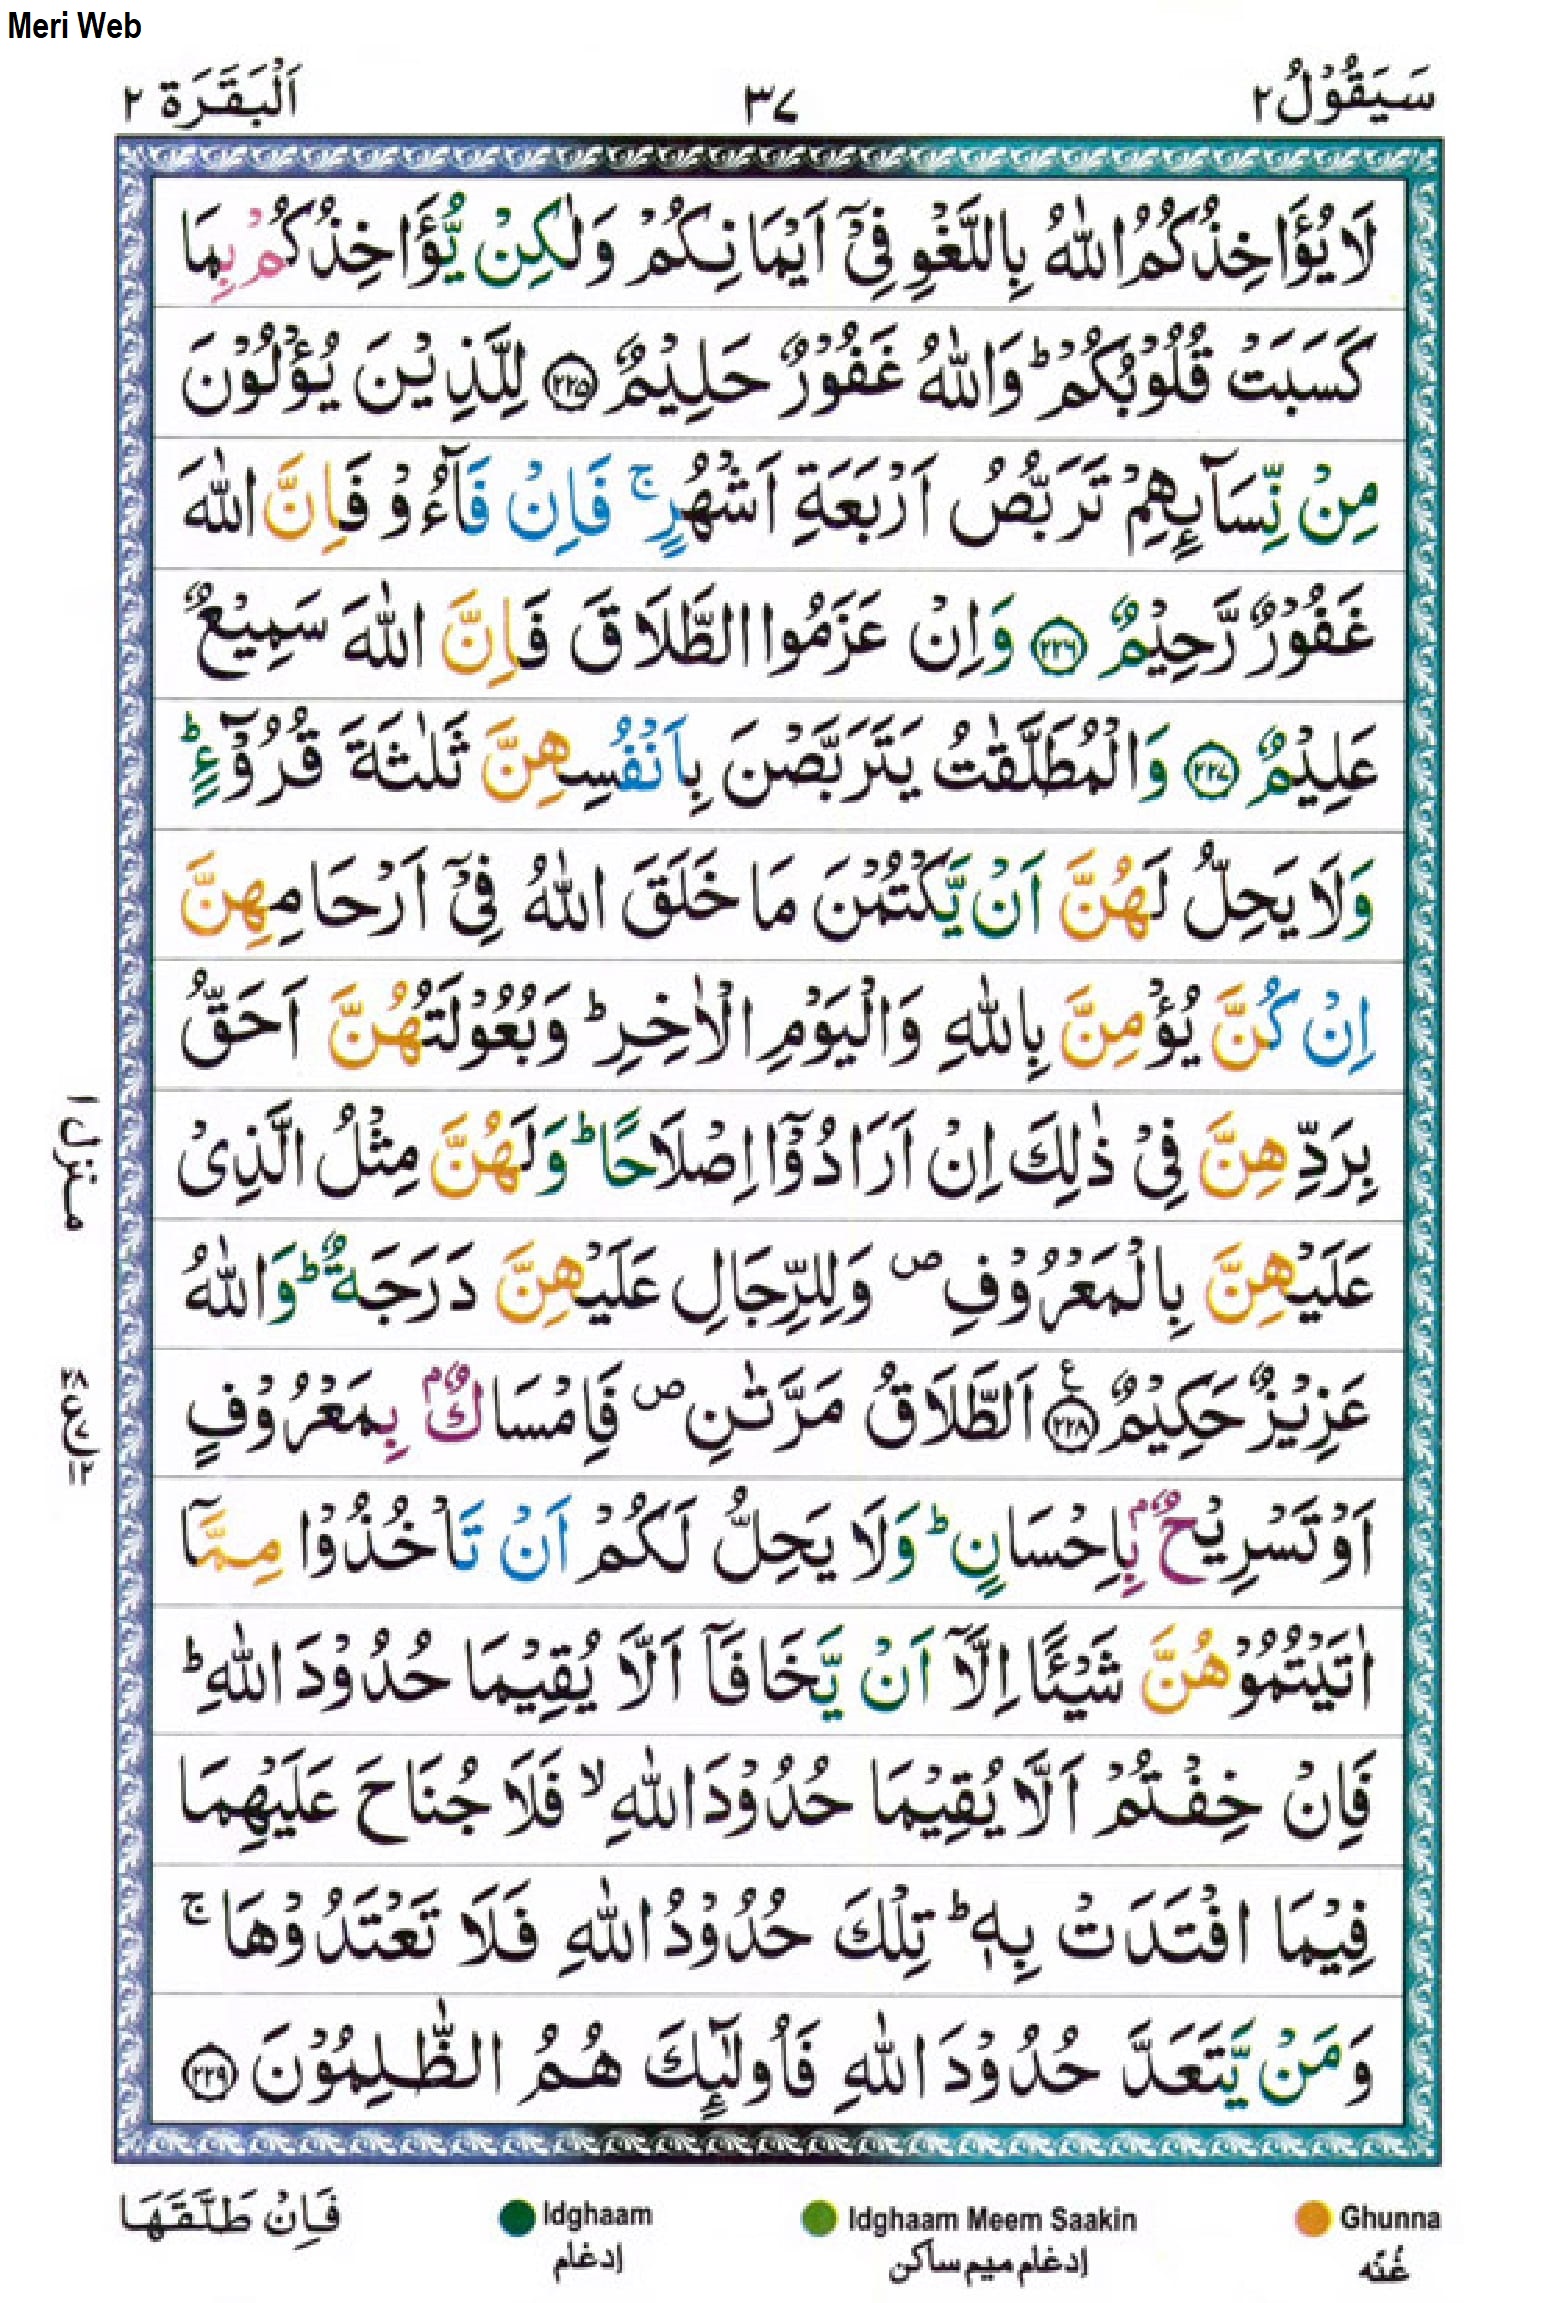 Meri Web
سَيَقُوْلُ ٢
٣٧
اَلْبَقَرَة ٢
لَا يُؤَاخِذُكُمُ اللّٰهُ بِاللَّغْوِ فِىْٓ اَيْمَانِكُمْ وَلٰكِنْ يُّؤَاخِذُكُمْ بِمَا
كَسَبَتْ قُلُوْبُكُمْ ؕ وَاللّٰهُ غَفُوْرٌ حَلِيْمٌ ﴿٢٢٥﴾ لِلَّذِيْنَ يُؤْلُوْنَ
مِنْ نِّسَآٮِٕهِمْ تَرَبُّصُ اَرْبَعَةِ اَشْهُرٍ ۚ فَاِنْ فَآءُوْ فَاِنَّ اللّٰهَ
غَفُوْرٌ رَّحِيْمٌ ﴿٢٢٦﴾ وَاِنْ عَزَمُوا الطَّلَاقَ فَاِنَّ اللّٰهَ سَمِيْعٌ
عَلِيْمٌ ﴿٢٢٧﴾ وَالْمُطَلَّقٰتُ يَتَرَبَّصْنَ بِاَنْفُسِهِنَّ ثَلٰثَةَ قُرُوْٓءٍ ؕ
وَلَا يَحِلُّ لَهُنَّ اَنْ يَّكْتُمْنَ مَا خَلَقَ اللّٰهُ فِىْٓ اَرْحَامِهِنَّ
اِنْ كُنَّ يُؤْمِنَّ بِاللّٰهِ وَالْيَوْمِ الْاٰخِرِ ؕ وَبُعُوْلَتُهُنَّ اَحَقُّ
بِرَدِّهِنَّ فِىْ ذٰلِكَ اِنْ اَرَادُوْٓا اِصْلَاحًا ؕ وَلَهُنَّ مِثْلُ الَّذِىْ
عَلَيْهِنَّ بِالْمَعْرُوْفِ ۖ وَلِلرِّجَالِ عَلَيْهِنَّ دَرَجَةٌ ؕ وَاللّٰهُ
عَزِيْزٌ حَكِيْمٌ ﴿٢٢٨﴾ ع اَلطَّلَاقُ مَرَّتٰنِ ۖ فَاِمْسَاكٌۢ بِمَعْرُوْفٍ
اَوْ تَسْرِيْحٌۢ بِاِحْسَانٍ ؕ وَلَا يَحِلُّ لَكُمْ اَنْ تَاْخُذُوْا مِمَّآ
اٰتَيْتُمُوْهُنَّ شَيْئًا اِلَّآ اَنْ يَّخَافَآ اَلَّا يُقِيْمَا حُدُوْدَ اللّٰهِ ؕ
فَاِنْ خِفْتُمْ اَلَّا يُقِيْمَا حُدُوْدَ اللّٰهِ ۙ فَلَا جُنَاحَ عَلَيْهِمَا
فِيْمَا افْتَدَتْ بِهٖ ؕ تِلْكَ حُدُوْدُ اللّٰهِ فَلَا تَعْتَدُوْهَا ۚ
وَمَنْ يَّتَعَدَّ حُدُوْدَ اللّٰهِ فَاُولٰٓٮِٕكَ هُمُ الظّٰلِمُوْنَ ﴿٢٢٩﴾
منزل ١
٢٨
ع ٧
١٢
فَاِنْ طَلَّقَهَا
Idghaam
إدغام
Idghaam Meem Saakin
إدغام ميم ساكن
Ghunna
غُنّه